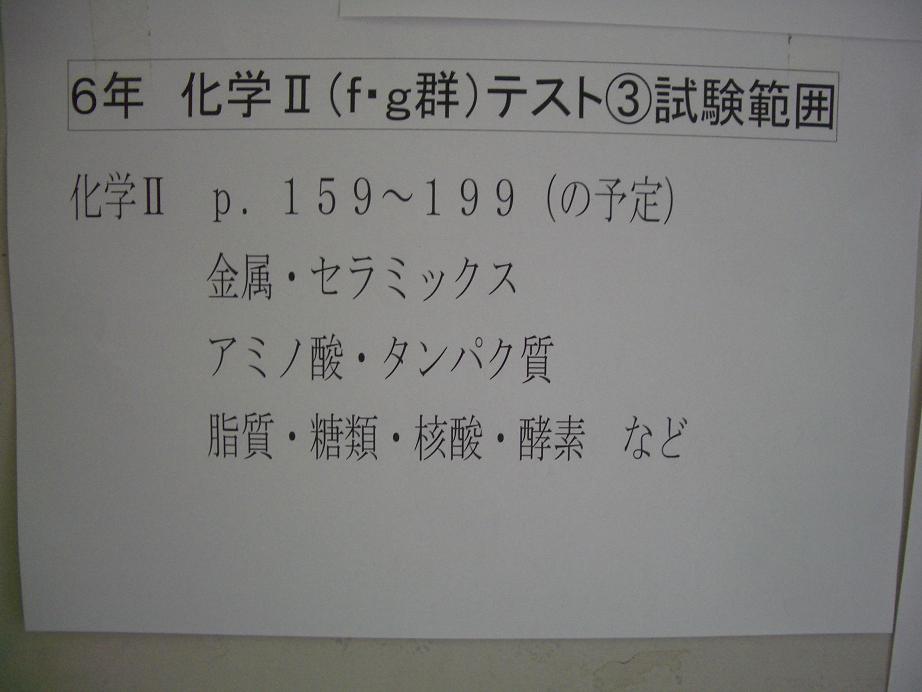 6年　化学Ⅱ(f・g群)テスト③試験範囲
化学Ⅱ　p．159～199 (の予定)
金属・セラミックス
アミノ酸・タンパク質
脂質・糖類・核酸・酵素　など